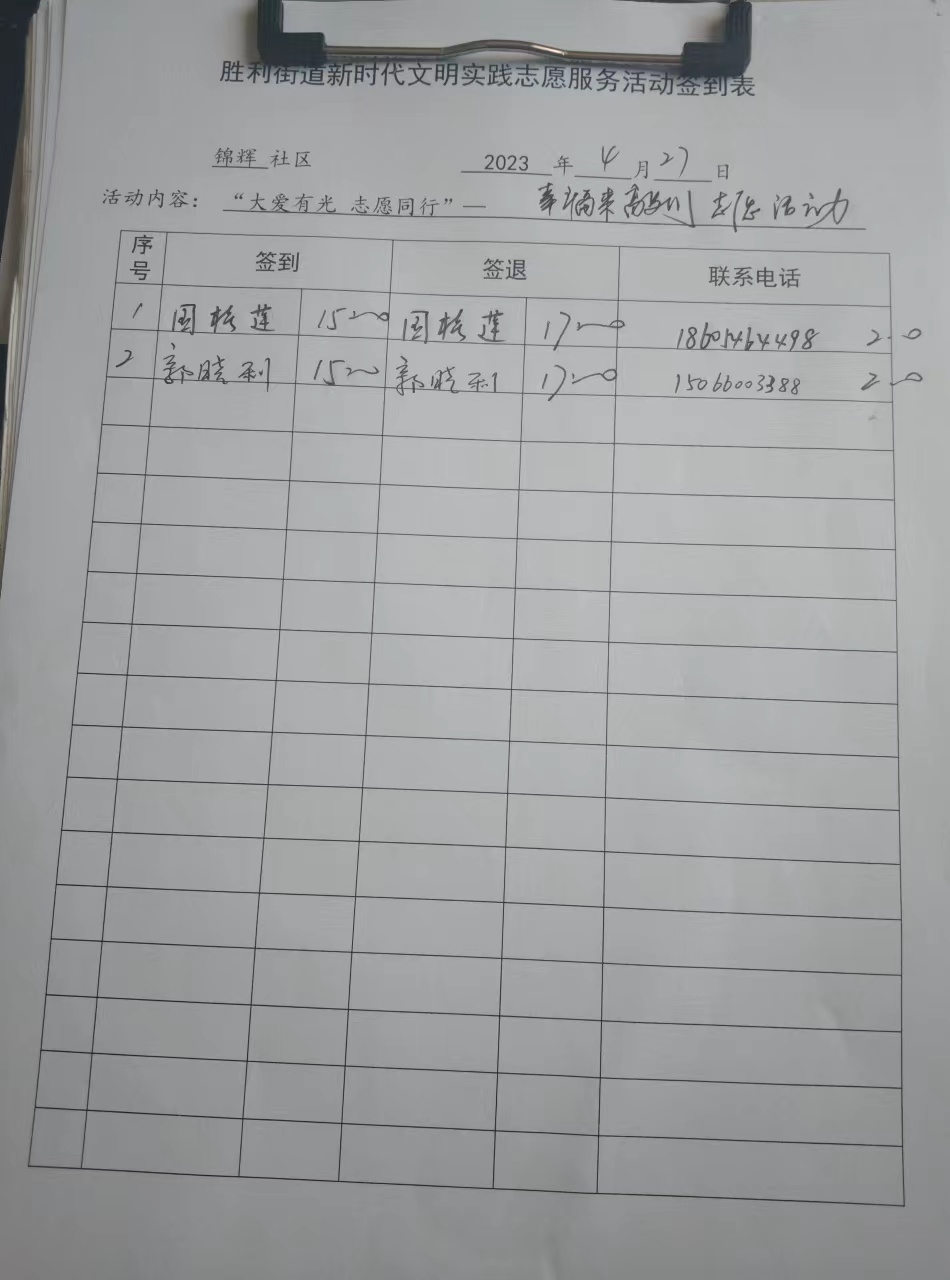 胜利街道新时代文明实践志愿服务活动签到表
锦辉 社区 2023 年 4 月 27 日
活动内容： “大爱有光 志愿同行”— 幸福来 志愿活动
序号 签到 签退 联系电话
1 国桂莲 15:00 国桂莲 17:00 18605464498 2.0
2 郭晓利 15:00 郭晓利 17:00 15066003388 2.0